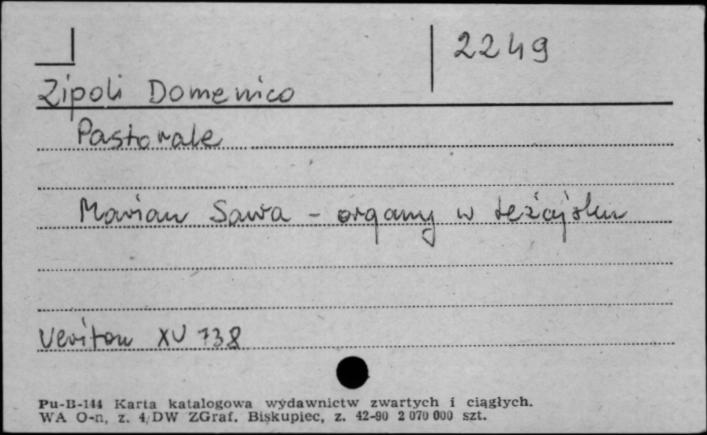 2249
Zipoli Domenico
Pastorale
Marian Sawa - organy w Leżajsku
Veriton XV 738
Pu-B-144 Karta katalogowa wydawnictw zwartych i ciągłych.
WA O-n, z. 4/DW ZGraf. Biskupiec, z. 42-90 2 070 000 szt.